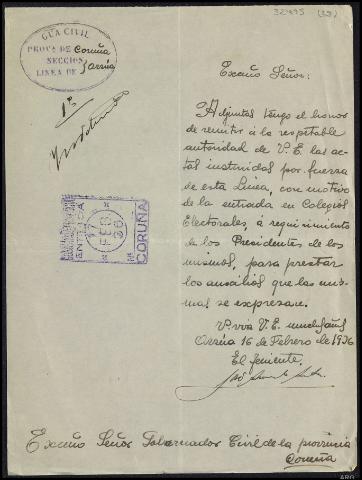 32495 (32)
GUA CIVIL
PROVA DE Coruña
SECCION
LINEA DE Arzúa
1º
Excmo Señor:
Adjuntas tengo el honor
de remitir á la respetable
autoridad de V.E. las ac-
tas instruidas por fuerza
de esta Linea, con motivo
de la entrada en Colegios
Electorales, á requerimiento
de los Presidentes de los
mismos, para prestar
los auxilios que las mis-
mas se expresan.
V. viva V.E. muchos años
Arzúa 16 de Febrero de 1936
El teniente.
ENTRADA
17 FEB 36
CORUÑA
Excmo Señor Gobernador Civil de la provincia
Coruña
ARG